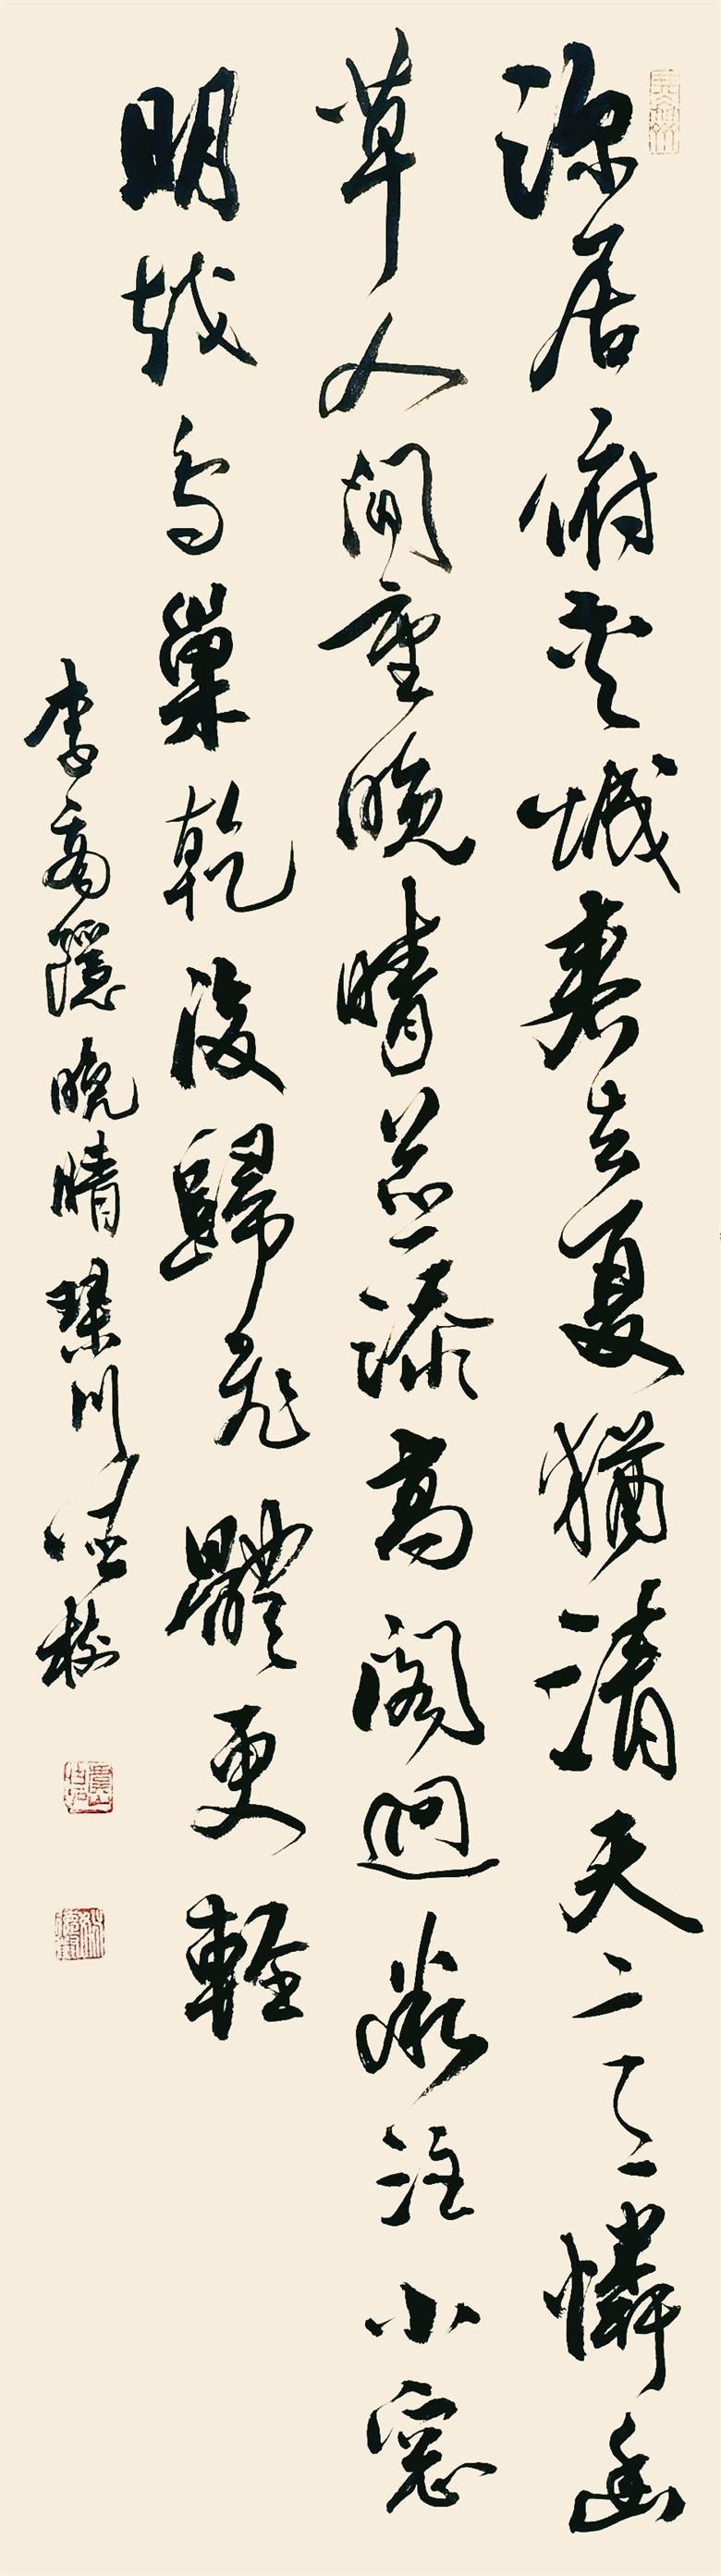 深居俯夾城春去夏猶清天意憐幽
草人間重晚晴並添高閣迥微注小窻
明越鳥巢乾後歸飛體更輕
李商隱晚晴琴川